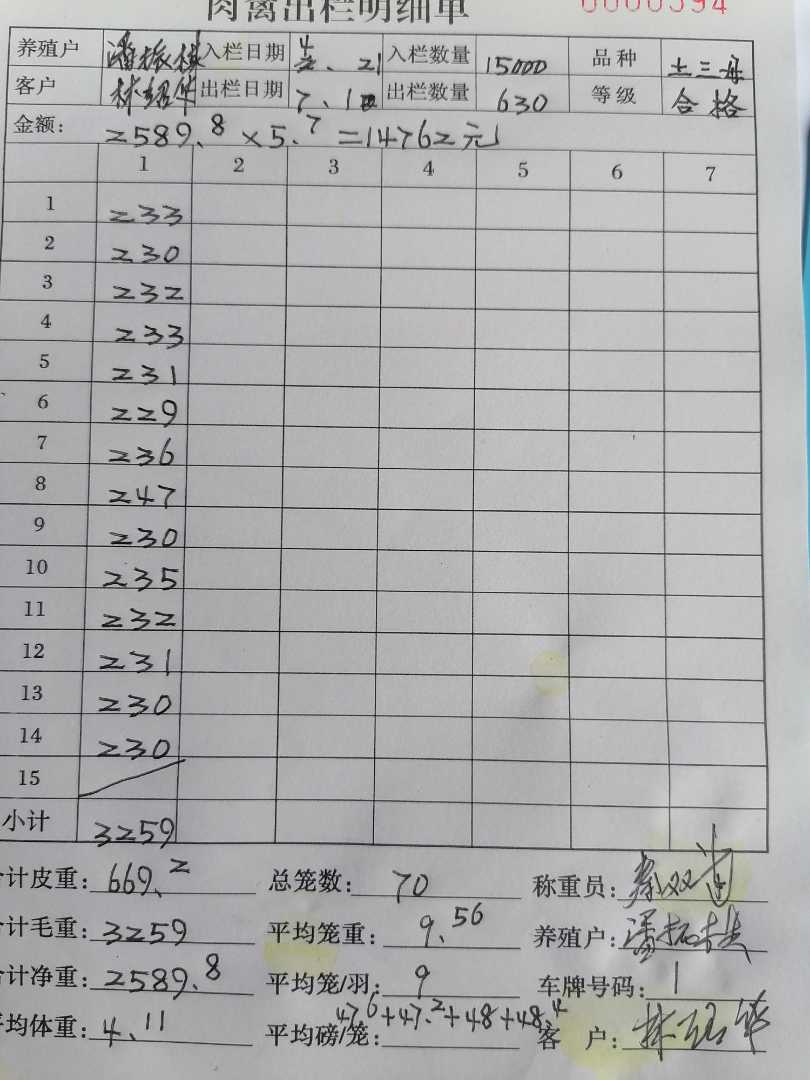 肉禽出栏明细单 0000394
养殖户 潘振林 入栏日期 4、21 入栏数量 15000 品种 土三母
客户 林绍华 出栏日期 7、1 出栏数量 630 等级 合格
金额: 2589.8×5.7=14762元
1 2 3 4 5 6 7
1 233
2 230
3 232
4 233
5 231
6 229
7 236
8 247
9 230
10 235
11 232
12 231
13 230
14 230
15
小计 3259
计皮重: 669.2 总笼数: 70 称重员:
计毛重: 3259 平均笼重: 9.56 养殖户:
计净重: 2589.8 平均笼/羽: 9 车牌号码: 1
平均体重: 4.11 平均磅/笼: 47.6+47.2+48+48.4 客 户: 林绍华